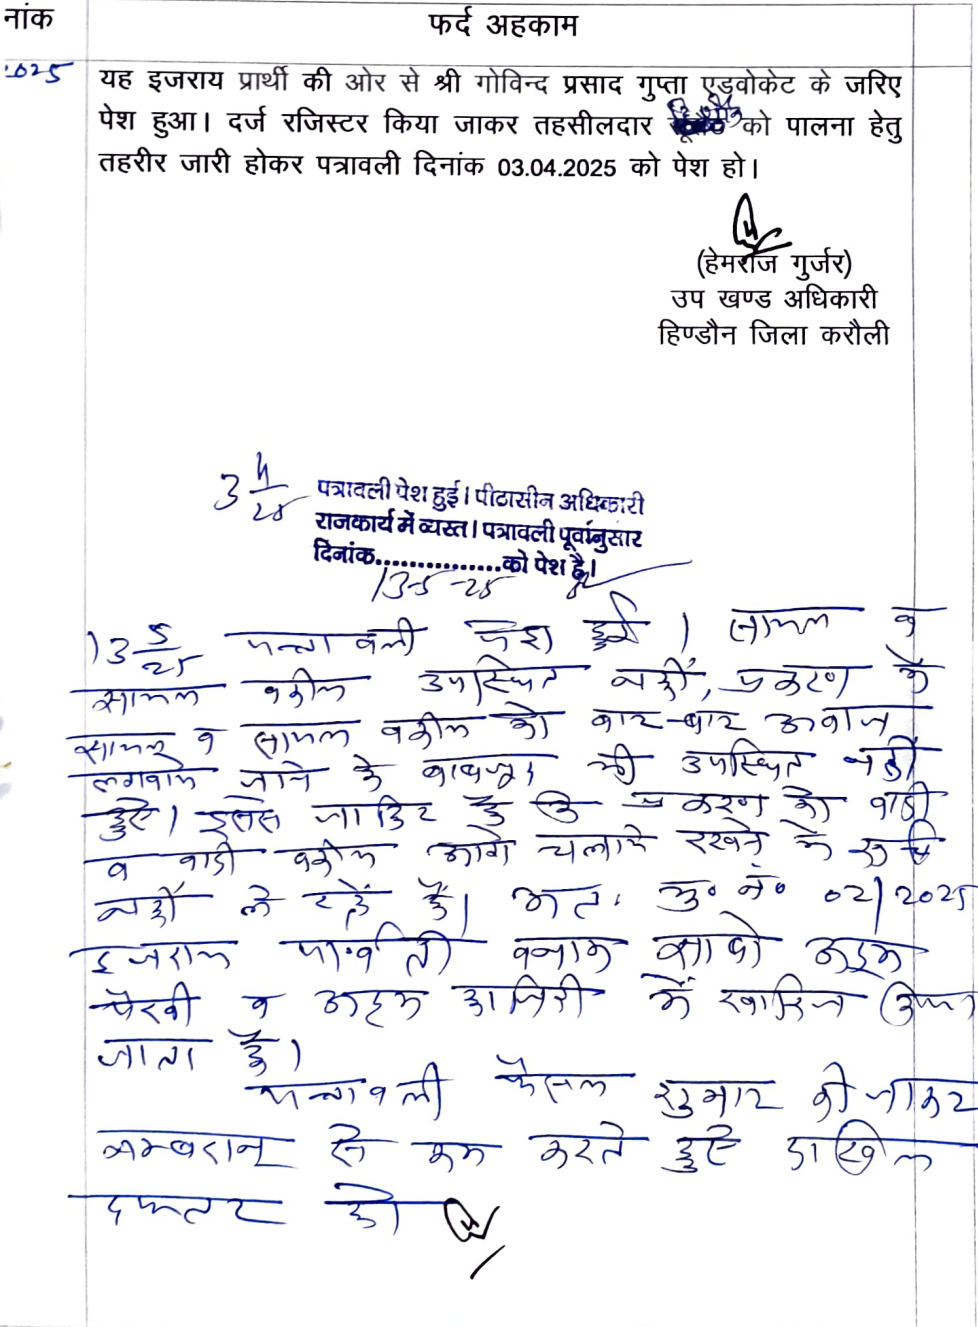 नांक
फर्द अहकाम
.025
यह इजराय प्रार्थी की ओर से श्री गोविन्द प्रसाद गुप्ता एडवोकेट के जरिए
पेश हुआ। दर्ज रजिस्टर किया जाकर तहसीलदार को पालना हेतु
तहरीर जारी होकर पत्रावली दिनांक 03.04.2025 को पेश हो।
(हेमराज गुर्जर)
उप खण्ड अधिकारी
हिण्डौन जिला करौली
3 4/25 पत्रावली पेश हुई। पीठासीन अधिकारी
राजकार्य में व्यस्त। पत्रावली पूर्वानुसार
दिनांक...............को पेश है।
13-5-25
13 5/25 पत्रावली पेश हुई। सायल व
सायल वकील उपस्थित नहीं, प्रकरण में
सायल व सायल वकील को बार-बार आवाज
लगवाये जाने के बावजूद भी उपस्थित नहीं
हुऐ। इससे जाहिर है कि प्रकरण को वादी
व वादी वकील आगे चलाये रखने में रूचि
नहीं ले रहें हैं। अतः मु० नं० 02/2025
इजराय पार्वती बनाम अदम
पैरवी व अदम हाजिरी में खारिज किया
जाता है।
पत्रावली फैसल शुमार की जाकर
नम्बरान से कम करते हुऐ दाखिल
दफ्तर हो